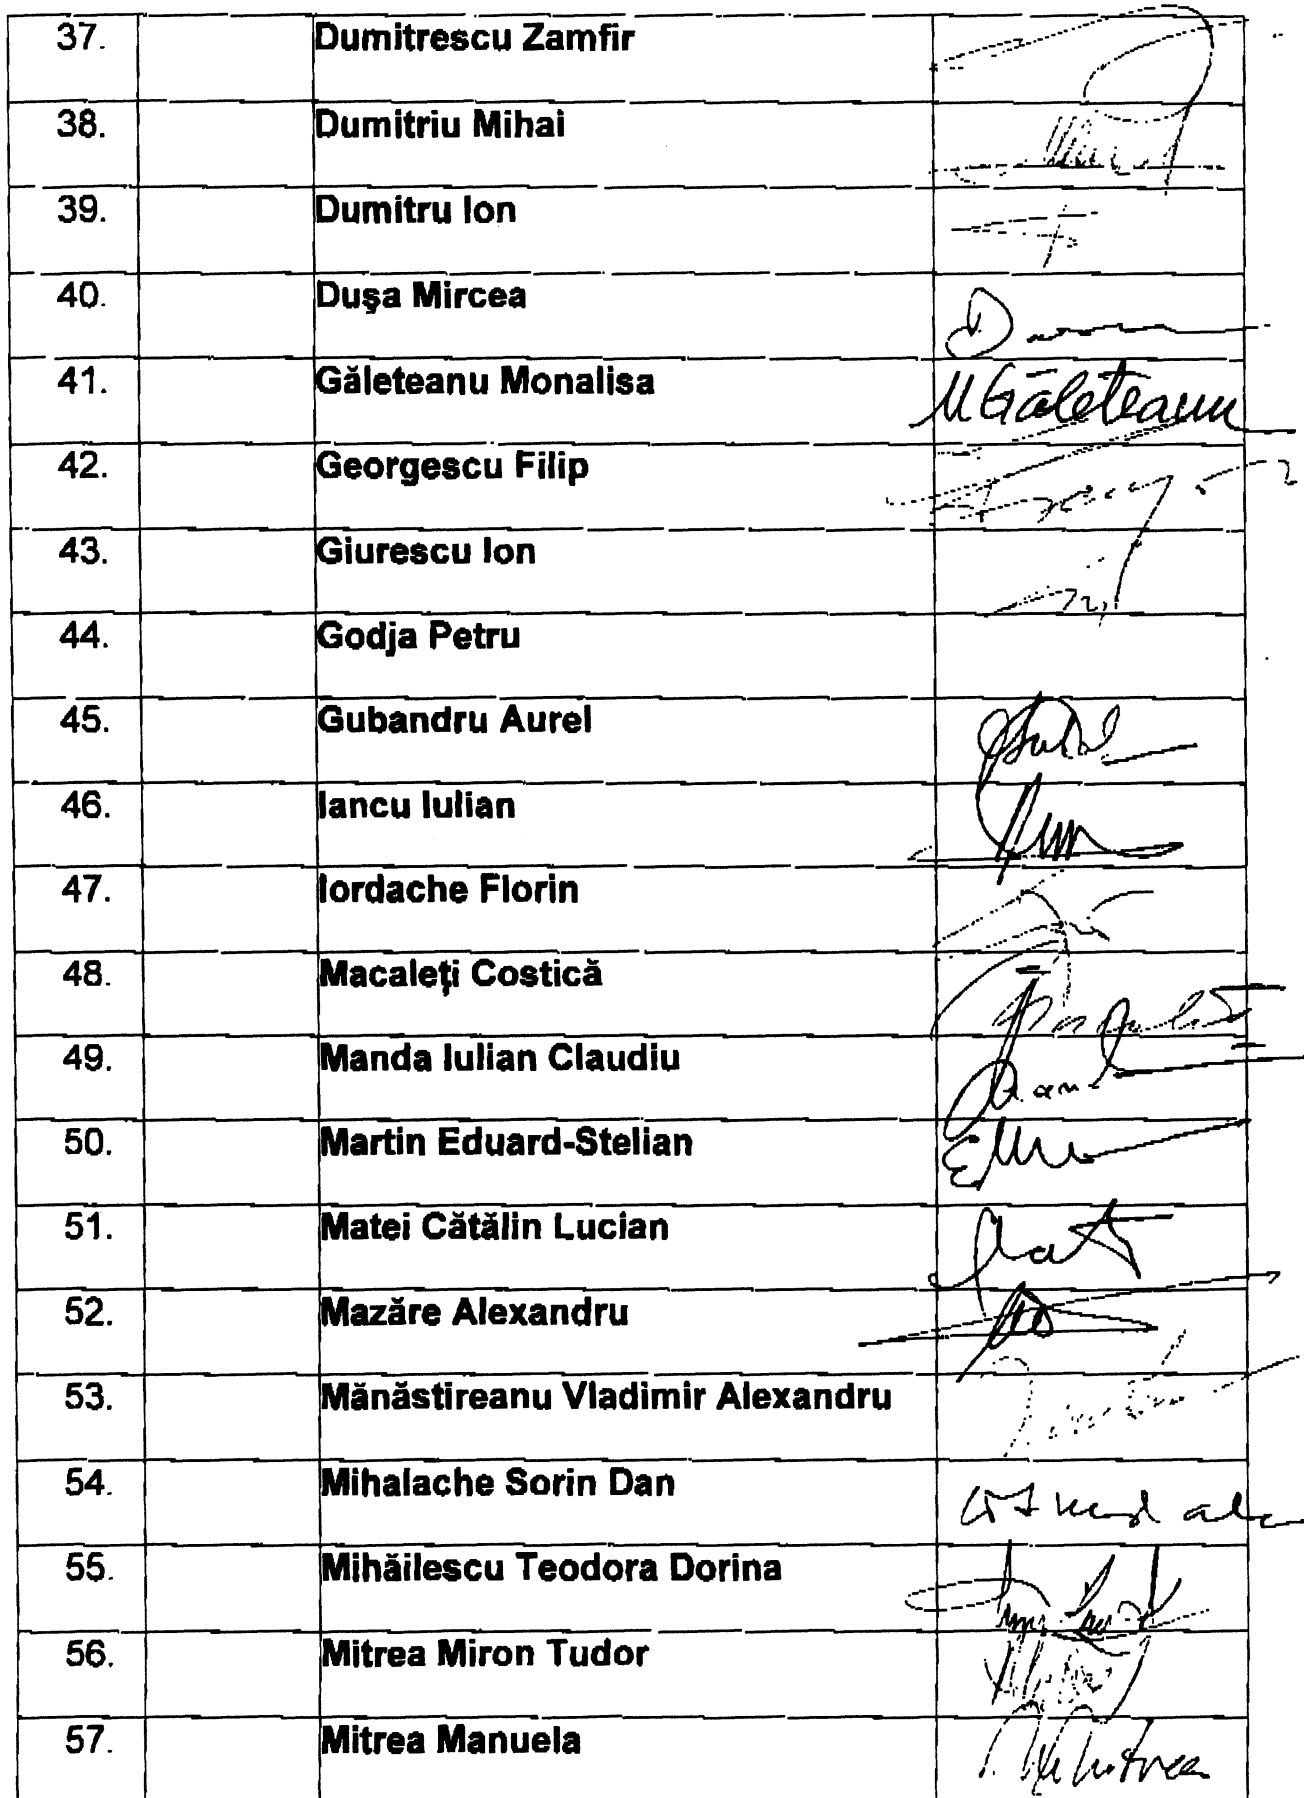 37. Dumitrescu Zamfir
38. Dumitriu Mihai
39. Dumitru Ion
40. Duşa Mircea
41. Găleteanu Monalisa M Găleteanu
42. Georgescu Filip
43. Giurescu Ion
44. Godja Petru
45. Gubandru Aurel
46. Iancu Iulian
47. Iordache Florin
48. Macaleţi Costică
49. Manda Iulian Claudiu
50. Martin Eduard-Stelian
51. Matei Cătălin Lucian
52. Mazăre Alexandru
53. Mănăstireanu Vladimir Alexandru
54. Mihalache Sorin Dan
55. Mihăilescu Teodora Dorina
56. Mitrea Miron Tudor
57. Mitrea Manuela